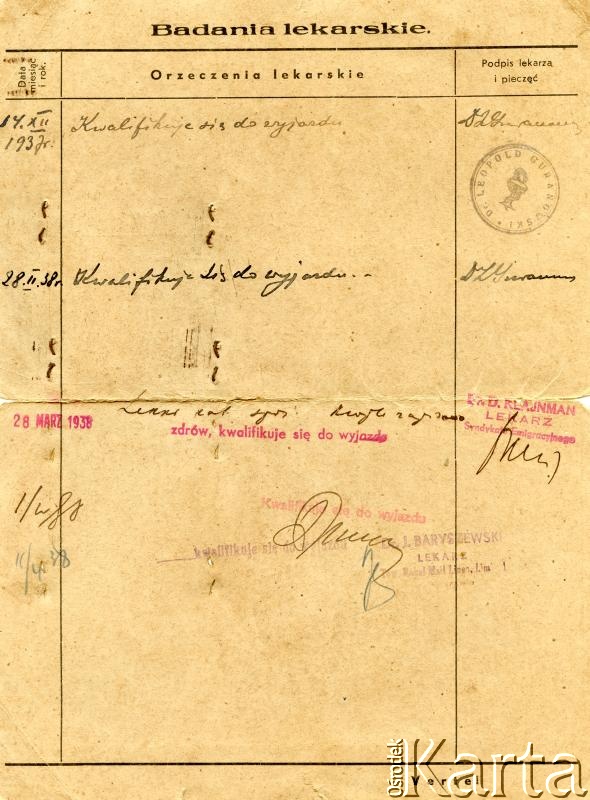 Badania lekarskie.
Data
miesiąc
i rok.
Orzeczenia lekarskie
Podpis lekarza
i pieczęć
17.XII
1937r.
Kwalifikuje się do wyjazdu
Dr LEOPOLD GURANOWSKI
28.II.38r.
Kwalifikuje się do wyjazdu
28 MARZ 1938
zdrów, kwalifikuje się do wyjazdu
Dr D. KLAJNMAN
LEKARZ
Syndykatu Emigracyjnego
Kwalifikuje się do wyjazdu
kwalifikuje się do wyjazdu
Dr. J. BARYSZEWSKI
LEKARZ
Royal Mail Lines, Lim
Verte!
Ośrodek
Karta